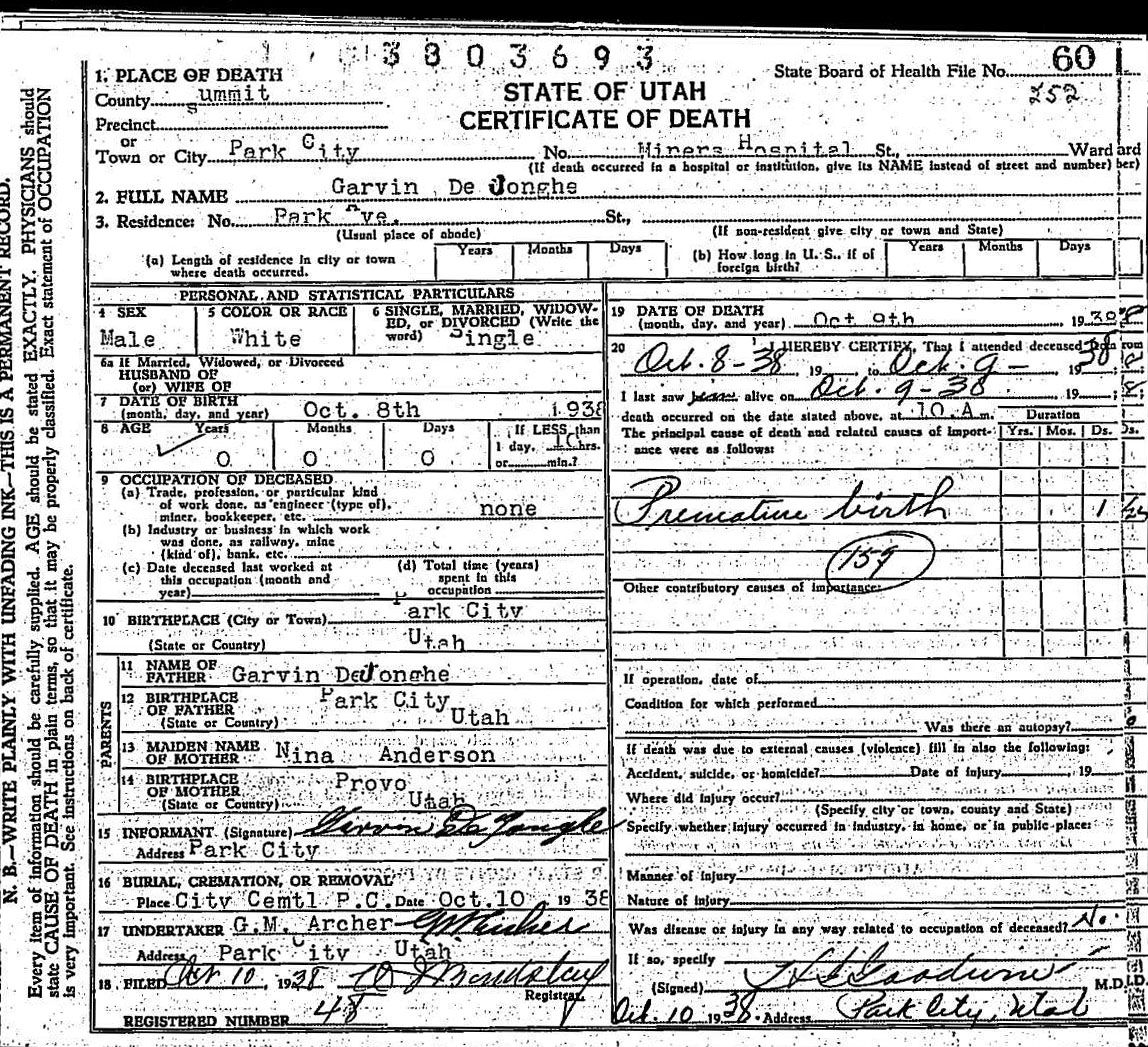 3803693
60
1. PLACE OF DEATH
State Board of Health File No.
252
County Summit
STATE OF UTAH
Precinct
CERTIFICATE OF DEATH
or
Town or City Park City No. Miners Hospital St., Ward
(If death occurred in a hospital or institution, give its NAME instead of street and number)
2. FULL NAME Garvin De Jonghe
3. Residence: No. Park Ave. St.,
(Usual place of abode) (If non-resident give city or town and State)
(a) Length of residence in city or town where death occurred. Years Months Days
(b) How long in U. S., if of foreign birth? Years Months Days
PERSONAL AND STATISTICAL PARTICULARS
4 SEX Male
5 COLOR OR RACE White
6 SINGLE, MARRIED, WIDOW-
ED, or DIVORCED (Write the
word) Single
6a If Married, Widowed, or Divorced
HUSBAND OF
(or) WIFE OF
7 DATE OF BIRTH
(month, day, and year) Oct. 8th 1938
8 AGE Years Months Days If LESS than
1 day, 10 hrs.
0 0 0 or min.?
9 OCCUPATION OF DECEASED
(a) Trade, profession, or particular kind
of work done, as engineer (type of),
miner, bookkeeper, etc. none
(b) Industry or business in which work
was done, as railway, mine
(kind of), bank, etc.
(c) Date deceased last worked at
this occupation (month and
year)
(d) Total time (years)
spent in this
occupation
10 BIRTHPLACE (City or Town) Park City
(State or Country) Utah
PARENTS
11 NAME OF
FATHER Garvin DeJonghe
12 BIRTHPLACE
OF FATHER Park City
(State or Country) Utah
13 MAIDEN NAME
OF MOTHER Nina Anderson
14 BIRTHPLACE
OF MOTHER Provo
(State or Country) Utah
15 INFORMANT (Signature) Garvin De Jonghe
Address Park City
16 BURIAL, CREMATION, OR REMOVAL
Place City Cemtl P.C. Date Oct.10 1938
17 UNDERTAKER G.M. Archer GM Archer
Address Park City Utah
18 FILED Oct 10, 1938
Registrar
REGISTERED NUMBER 48
19 DATE OF DEATH
(month, day, and year) Oct 9th, 1938
20 I HEREBY CERTIFY, That I attended deceased from
Oct. 8-38, 19 to Oct. 9 - 1938;
I last saw him alive on Oct. 9-38, 19
death occurred on the date stated above, at 10. A m. Duration
The principal cause of death and related causes of import- Yrs. Mos. Ds.
ance were as follows:
Premature birth 1
159
Other contributory causes of importance:
If operation, date of
Condition for which performed
Was there an autopsy?
If death was due to external causes (violence) fill in also the following:
Accident, suicide, or homicide? Date of injury, 19
Where did injury occur?
(Specify city or town, county and State)
Specify whether injury occurred in industry, in home, or in public place:
Manner of injury
Nature of injury
Was disease or injury in any way related to occupation of deceased? No.
If so, specify
(Signed) Goodwin M.D.
Oct. 10 1938. Address Park City, Utah
N. B.—WRITE PLAINLY WITH UNFADING INK—THIS IS A PERMANENT RECORD.
Every item of information should be carefully supplied. AGE should be stated EXACTLY. PHYSICIANS should
state CAUSE OF DEATH in plain terms, so that it may be properly classified. Exact statement of OCCUPATION
is very important. See instructions on back of certificate.